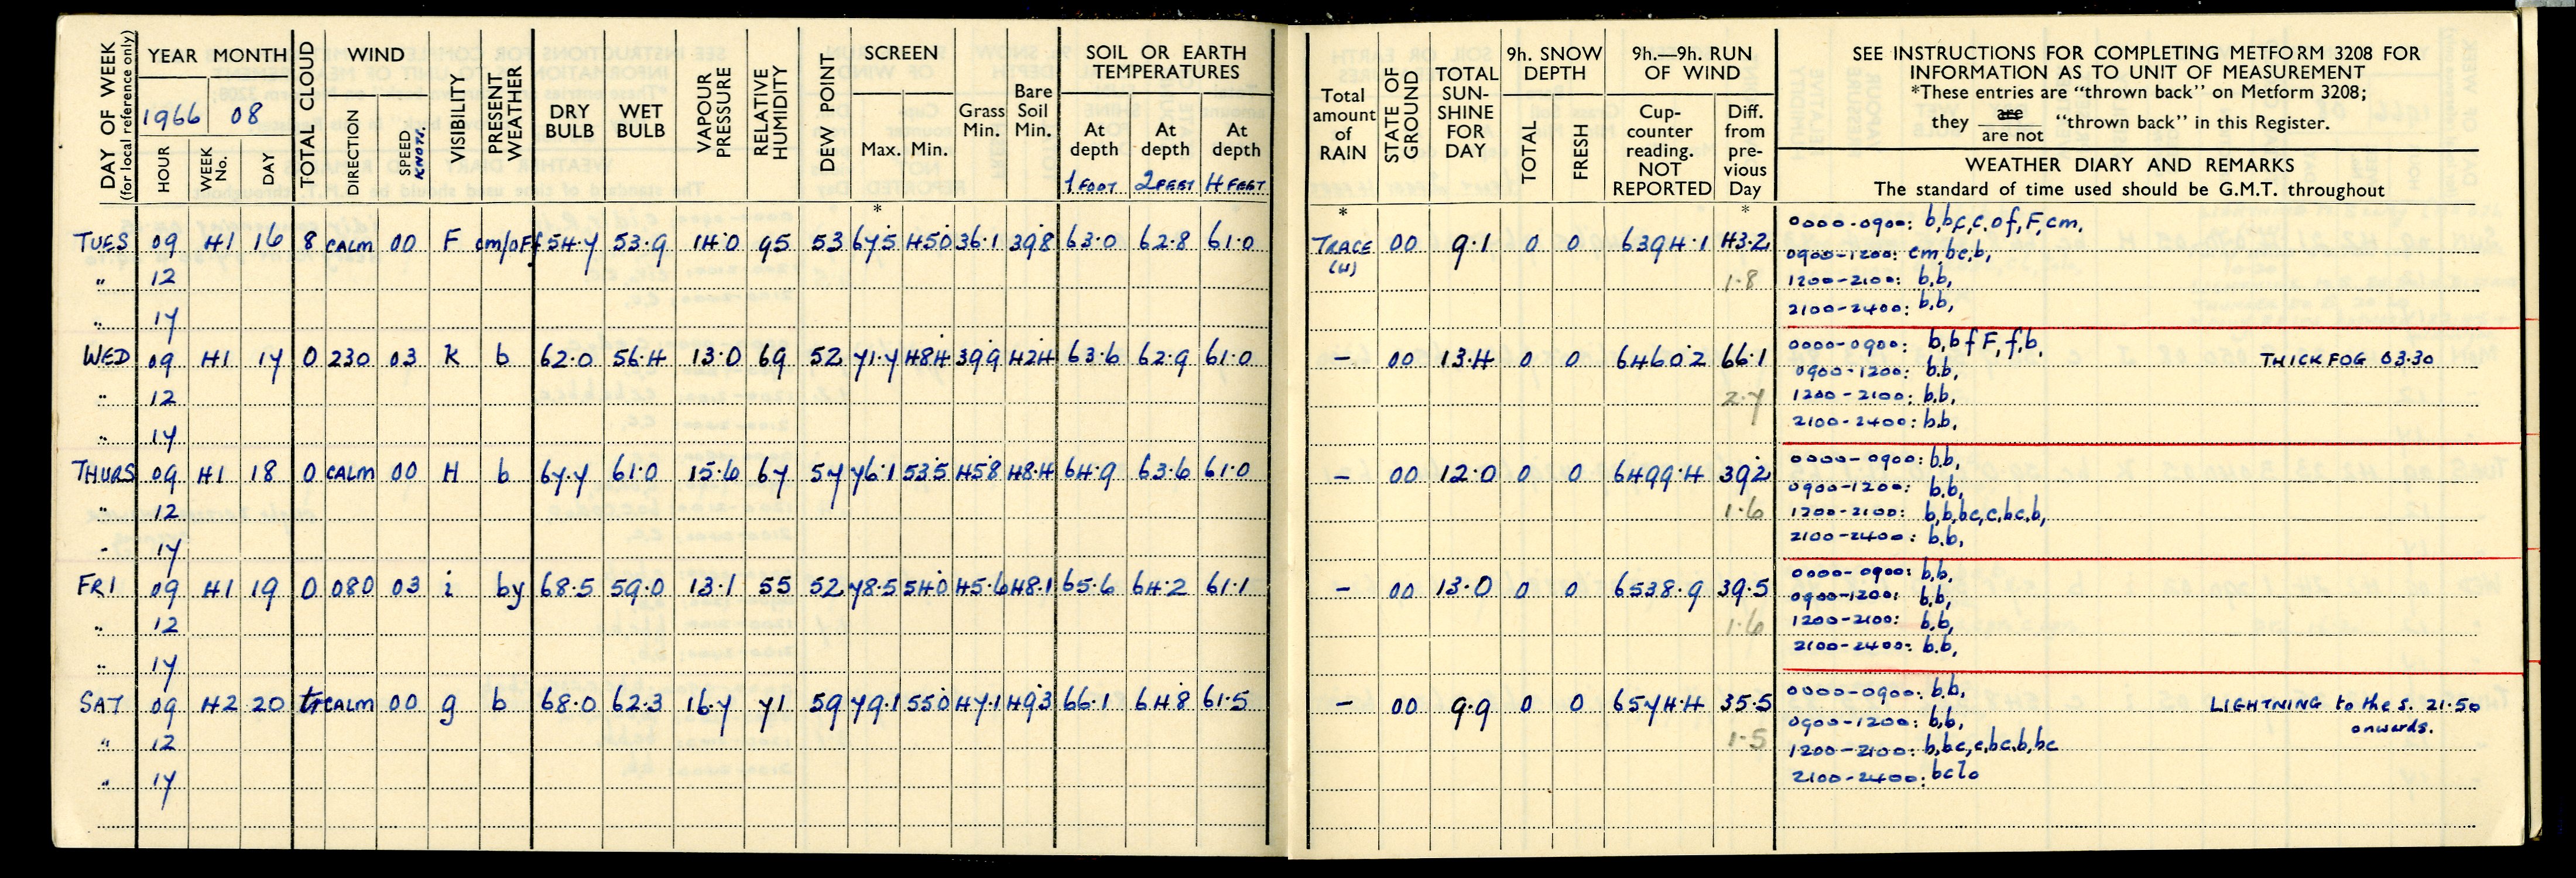 DAY OF WEEK
(for local reference only)
YEAR MONTH
1966 08
HOUR
WEEK No.
DAY
TOTAL CLOUD
WIND
DIRECTION
SPEED KNOTS.
VISIBILITY
PRESENT WEATHER
DRY BULB
WET BULB
VAPOUR PRESSURE
RELATIVE HUMIDITY
DEW POINT
SCREEN
Max. Min.
*
Grass Min.
Bare Soil Min.
SOIL OR EARTH TEMPERATURES
At depth 1 FOOT
At depth 2 FEET
At depth 4 FEET
Total amount of RAIN
*
STATE OF GROUND
TOTAL SUN-SHINE FOR DAY
9h. SNOW DEPTH
TOTAL
FRESH
9h.—9h. RUN OF WIND
Cup-counter reading. NOT REPORTED
Diff. from pre-vious Day
*
SEE INSTRUCTIONS FOR COMPLETING METFORM 3208 FOR
INFORMATION AS TO UNIT OF MEASUREMENT
*These entries are "thrown back" on Metform 3208;
they are / are not "thrown back" in this Register.
WEATHER DIARY AND REMARKS
The standard of time used should be G.M.T. throughout
TUES 09 41 16 8 CALM 00 F cm/oFf 54.7 53.9 14.0 95 53 67.5 45.0 36.1 39.8 63.0 62.8 61.0 TRACE (W) 00 9.1 0 0 6394.1 43.2 0000-0900: b,bc,c,of,F,cm,
0900-1200: cm,bc,b,
" 12 1.8 1200-2100: b,b,
" 17 2100-2400: b,b,
WED 09 41 17 0 230 03 k b 62.0 56.4 13.0 69 52 71.7 48.4 39.9 42.4 63.6 62.9 61.0 - 00 13.4 0 0 6460.2 66.1 0000-0900: b,bfF,f,b, THICK FOG 03.30
0900-1200: b,b,
" 12 2.7 1200-2100: b,b,
" 17 2100-2400: b,b,
THURS 09 41 18 0 CALM 00 H b 67.7 61.0 15.6 67 57 76.1 53.5 45.8 48.4 64.9 63.6 61.0 - 00 12.0 0 0 6499.4 39.2 0000-0900: b,b,
0900-1200: b,b,
" 12 1.6 1200-2100: b,b,bc,c,bc,b,
" 17 2100-2400: b,b,
FRI 09 41 19 0 080 03 i by 68.5 59.0 13.1 55 52 78.5 54.0 45.6 48.1 65.6 64.2 61.1 - 00 13.0 0 0 6538.9 39.5 0000-0900: b,b,
0900-1200: b,b,
" 12 1.6 1200-2100: b,b,
" 17 2100-2400: b,b,
SAT 09 42 20 tr CALM 00 g b 68.0 62.3 16.7 71 59 79.1 55.0 47.1 49.3 66.1 64.8 61.5 - 00 9.9 0 0 6574.4 35.5 0000-0900: b,b, LIGHTNING to the S. 21.50 onwards.
0900-1200: b,b,
" 12 1.5 1200-2100: b,bc,c,bc,b,bc
" 17 2100-2400: bclo